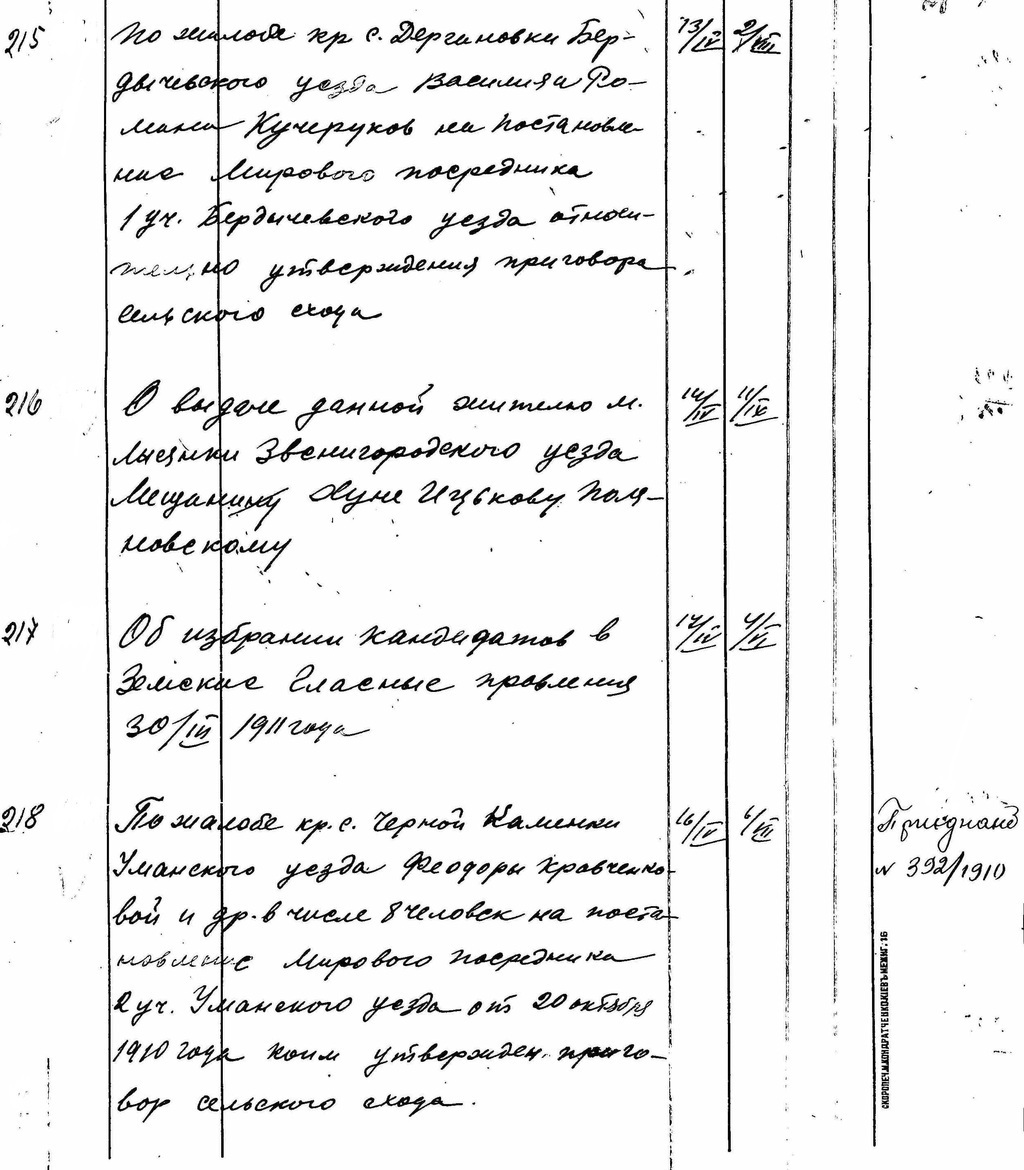 215 По жалобе кр с. Дергановки Бер- 13/IV 2/VIII
дычевского уезда Василия и Ро-
мана Кучеруков на постановле-
ние Мирового посредника
1 уч. Бердычевского уезда относи-
тельно утверждения приговора
сельского схода
216 О выдаче данной жителю м. 14/IV 11/IX
Лысянки Звенигородского уезда
Мещанину Хуне Ицькову Поля-
новскому
217 Об избрании кандидатов в 14/IV 4/VI
Земские Гласные правления
30/III 1911 года
218 По жалобе кр. с. Черной Каменки 16/IV 6/VII Приєднано
Уманского уезда Феодоры Кравченко- № 392/1910
вой и др. в числе 8 человек на поста-
новление Мирового посредника
2 уч. Уманского уезда от 20 октября
1910 года коим утвержден приго-
вор сельского схода.
СКОРОПЕЧ. М. КОНДРАТЧЕНКО. КІЕВЪ МЕЖИГ. 16